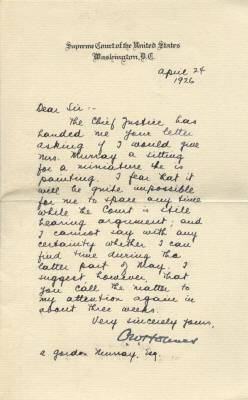 Supreme Court of the United States
Washington, D.C.
April 24
1926
Dear Sir:-
The Chief Justice has
handed me your letter
asking if I would give
Mrs. Murray a sitting
for a miniature she is
painting. I fear that it
will be quite impossible
for me to spare any time
while the Court is still
hearing argument; and
I cannot say with any
certainty whether I can
find time during the
latter part of May. I
suggest however that
you call the matter to
my attention again in
about three weeks.
Very sincerely yours,
OW Holmes
A Gordon Murray, Esq.